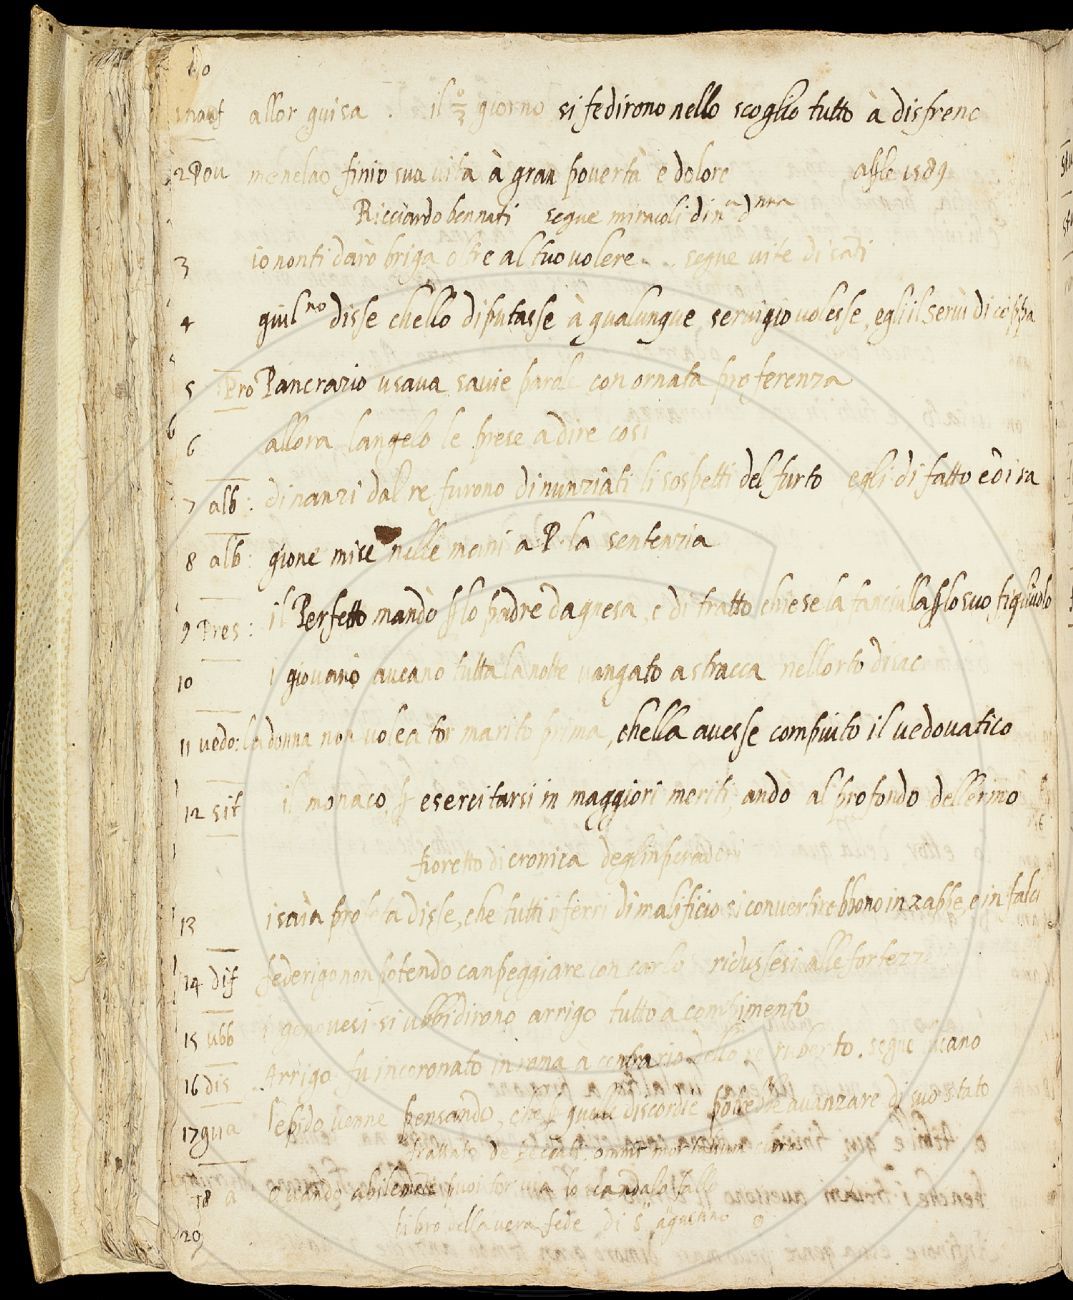 allor guisa il giorno si fedirono nello scoglio tutto à disfrenc
2 Pou menelao finio sua vita à gran povertà e dolore asle 1589
Ricciardo bennati segue miracoli di
3 io non ti darò briga oltre al tuo volere segue vite di sati
4 guilno disse chello diputasse à qualunque servigio volesse, egli il servì di coppa
5 Pro Pancrazio usava savie parole con ornata proferenza
6 allora langelo le prese a dire cosi
7 alb: dinanzi dal re furono dinunziati li sospetti del furto egli di fatto e di ra
8 alb: gione mise nelle mani a P. la sentenzia
9 Pres: il Perfetto mandò padre dagnesa, e di tratto chiese la fanciulla suo figliuolo
10 i giovani aveano tutta la notte vangato a stracca nellorto
11 vedo: la donna non volea tor marito prima, chella avesse compiuto il vedovatico
12 sit il monaco esercitarsi in maggiori meriti andò al profondo dellermo
fioretto di cronica deglinperadori
13 isaia profeta disse, che tutti i ferri di malificio si convertirebbono in zappe, e in falci
14 dif federigo non potendo canpeggiare con carlo ridussesi alle fortezze
15 ubb I genovesi si ubbidirono arrigo tutto a compimento
16 dis Arrigo fu incoronato in roma à contrario dello re ruberto. segue
17 gua lepido venne pensando, che quale discordie potesse avanzare di suo stato
trattato de peccati
18 a Quando
20 libro della vera fede di